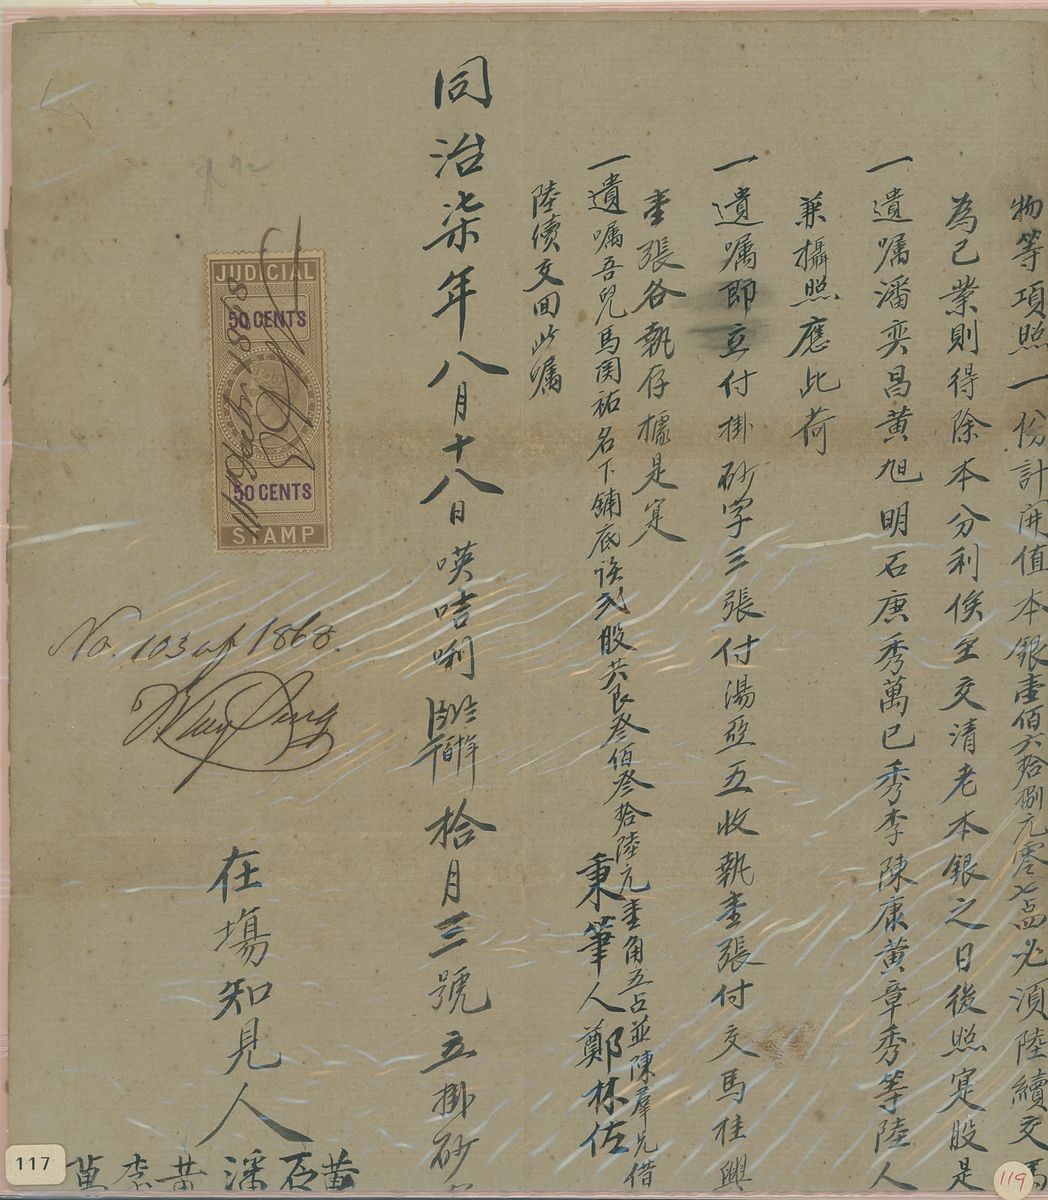 物等項照一份計開值本銀壹佰六拾捌元零七占四必須陸續交馬
為己業則得除本分利俟至交清老本銀之日後照寔股是
一遺嘱潘奕昌黃旭明石庚秀萬已秀李陳康黃章秀等陸人
兼攝照應此荷
一遺嘱即立付掛砂字三張付湯亞五收執壹張付交馬桂興
壹張各執存據是寔
一遺嘱吾兒馬関祐名下舖底該弍股共艮叄佰叄拾陸元壹角五占並陳羣兄借
陸續交回此嘱
秉筆人鄭林佐
同治柒年八月十八日嘆咭唎 拾月三號立掛砂
在塲知見人
黃 石 潘 黃 李 萬
JUDICIAL
50 CENTS
50 CENTS
STAMP
No. 103 of 1868.
117
119